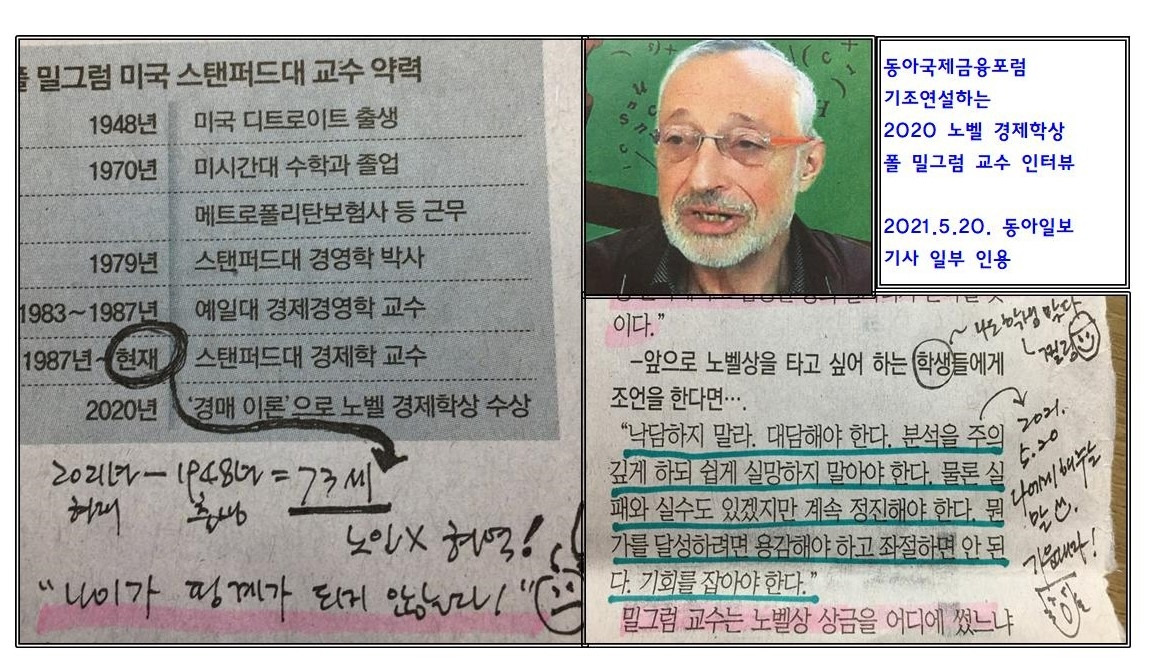 폴 밀그럼 미국 스탠퍼드대 교수 약력
1948년 미국 디트로이트 출생
1970년 미시간대 수학과 졸업
메트로폴리탄보험사 등 근무
1979년 스탠퍼드대 경영학 박사
1983~1987년 예일대 경제경영학 교수
1987년~현재 스탠퍼드대 경제학 교수
2020년 '경매 이론'으로 노벨 경제학상 수상
2021년 - 1948년 = 73세
현재 출생
노인X 현역!
"나이가 핑계가 되지 않는다!"
동아국제금융포럼
기조연설하는
2020 노벨 경제학상
폴 밀그럼 교수 인터뷰
2021.5.20. 동아일보
기사 일부 인용
이다."
-앞으로 노벨상을 타고 싶어 하는 학생들에게
조언을 한다면….
"낙담하지 말라. 대담해야 한다. 분석을 주의
깊게 하되 쉽게 실망하지 말아야 한다. 물론 실
패와 실수도 있겠지만 계속 정진해야 한다. 뭔
가를 달성하려면 용감해야 하고 좌절하면 안 된
다. 기회를 잡아야 한다."
밀그럼 교수는 노벨상 상금을 어디에 썼느냐
~ 나도 학생 맞다
2021.
5.20
나에게 해주는
말